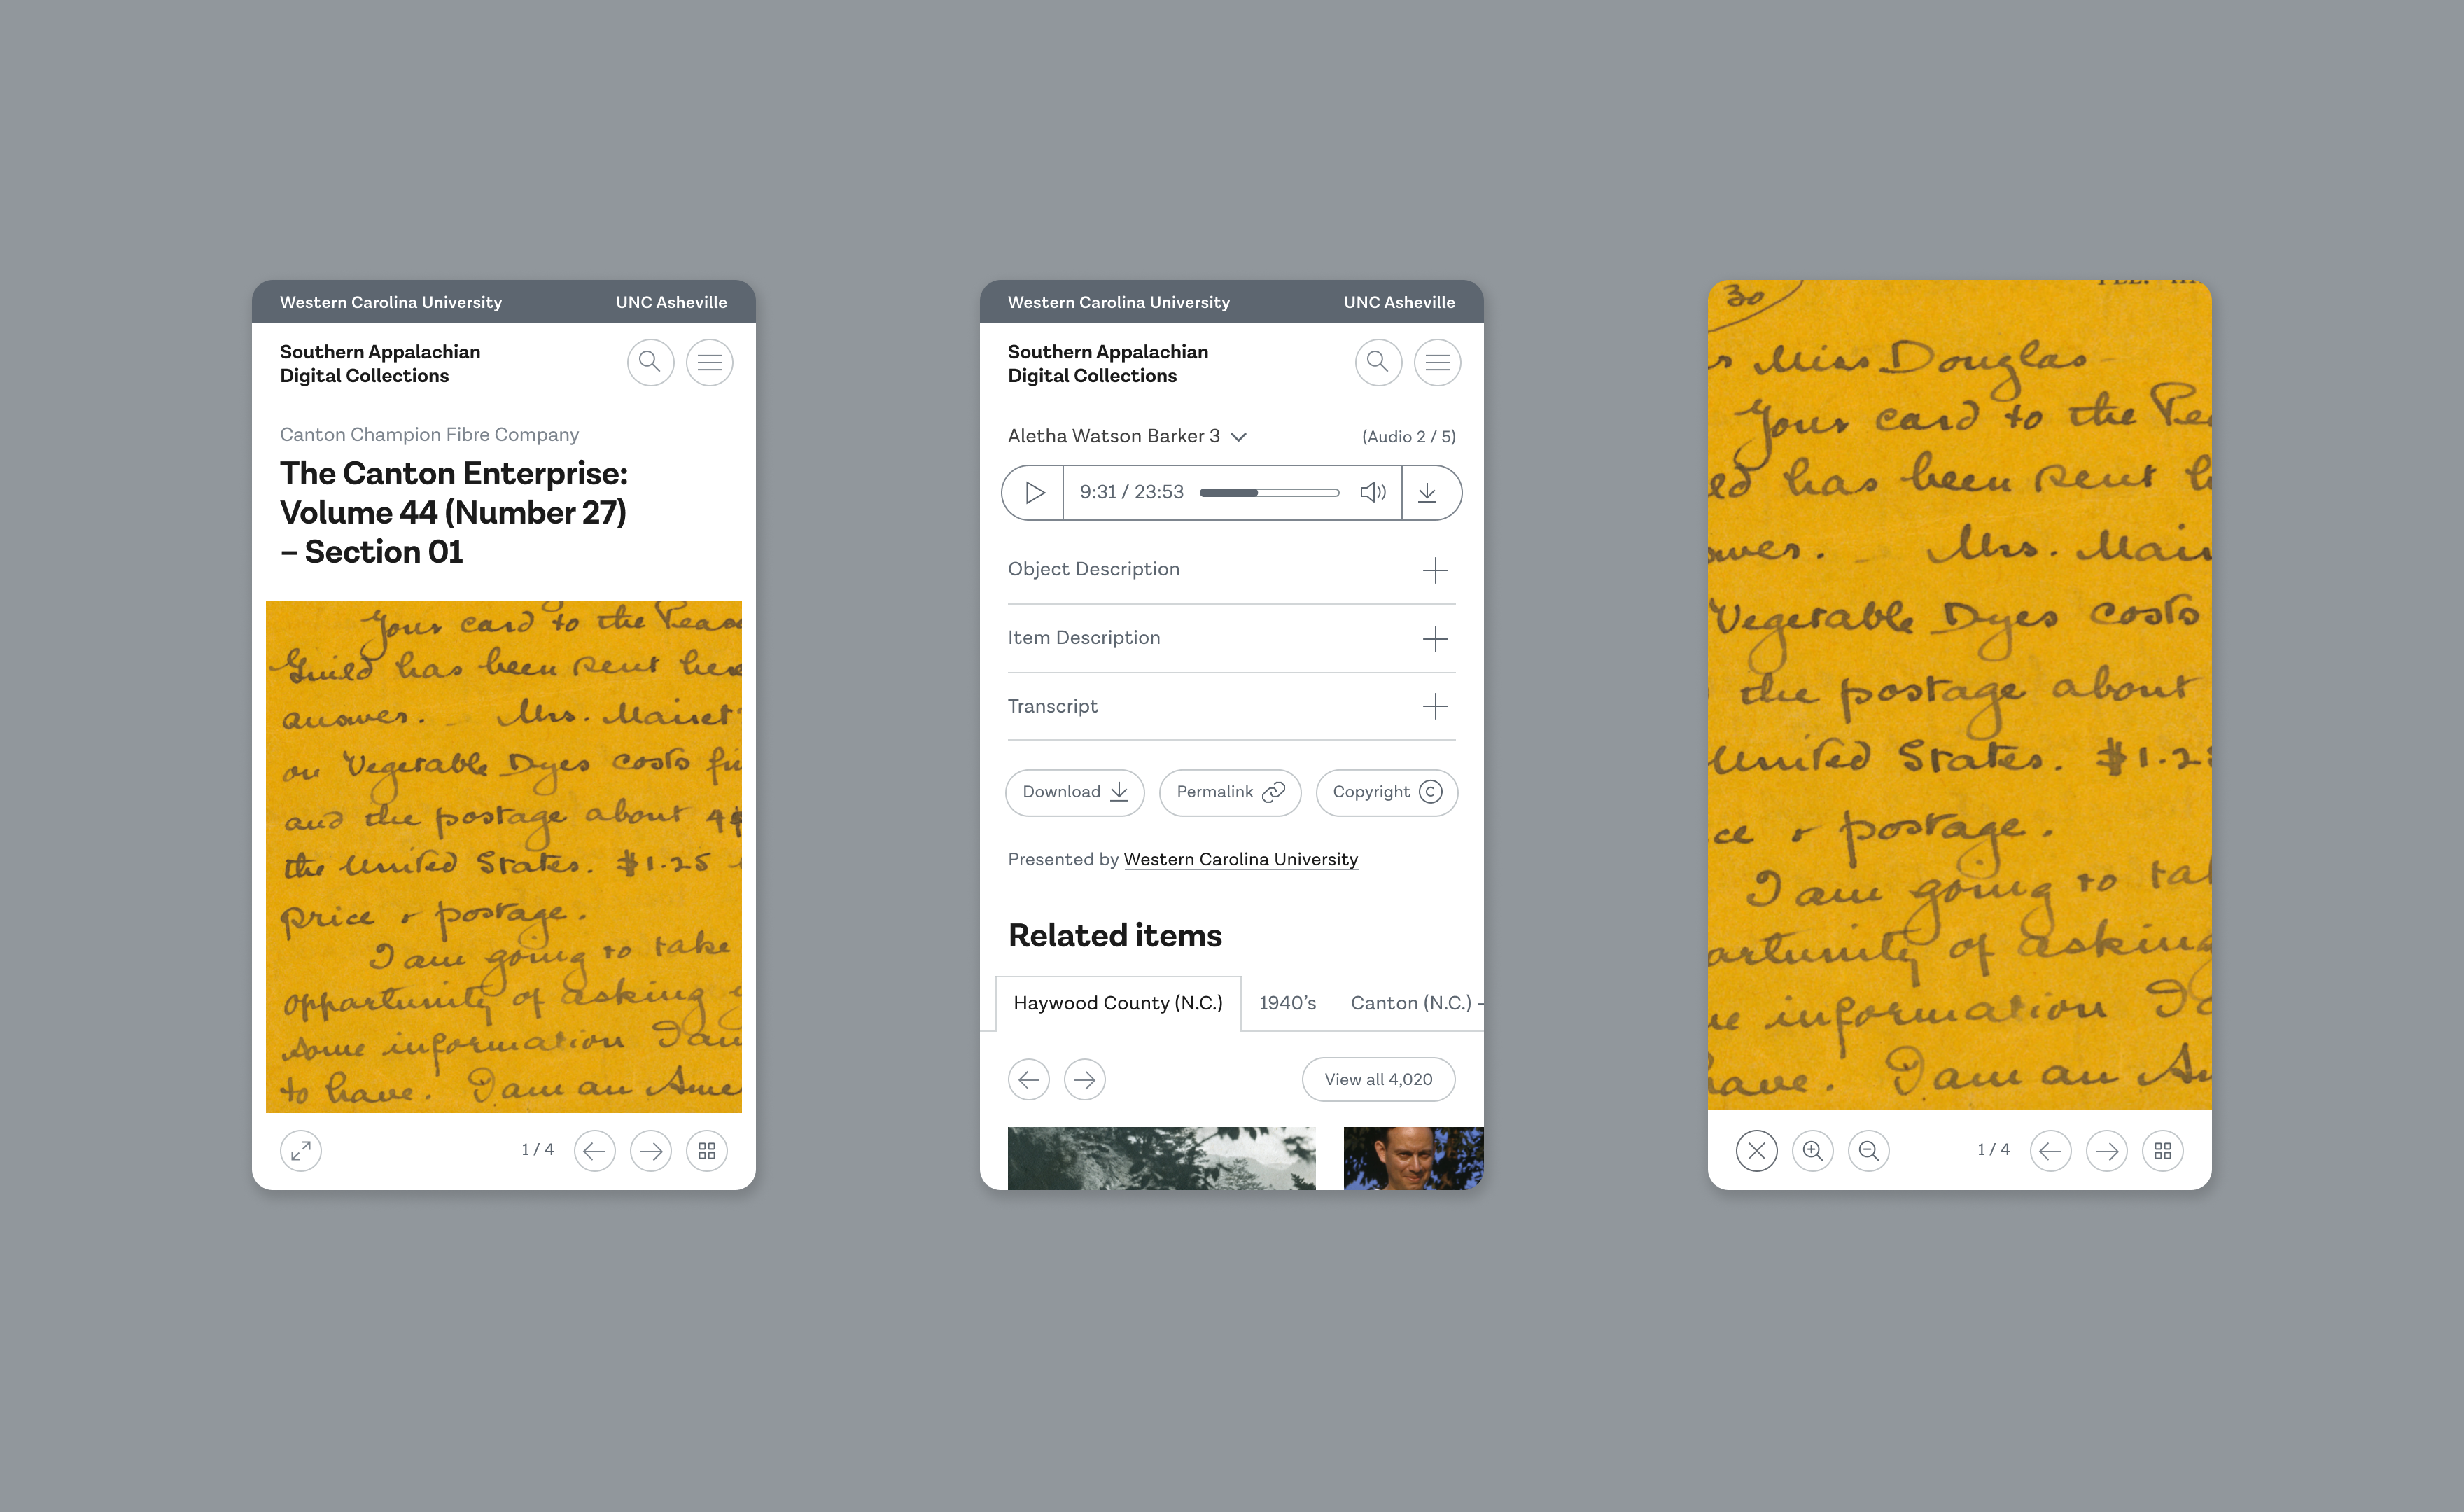 Western Carolina University UNC Asheville
Southern Appalachian
Digital Collections
Canton Champion Fibre Company
The Canton Enterprise:
Volume 44 (Number 27)
– Section 01
Your card to the
Guild has been sent here
answer. – Mrs. Mairet
on Vegetable Dyes costs
and the postage about
the United States. $1.25
price & postage.
I am going to take
opportunity of asking
some information I am
to have. I am an Ame
1 / 4
Western Carolina University UNC Asheville
Southern Appalachian
Digital Collections
Aletha Watson Barker 3 (Audio 2 / 5)
9:31 / 23:53
Object Description
Item Description
Transcript
Download Permalink Copyright
Presented by Western Carolina University
Related items
Haywood County (N.C.) 1940’s Canton (N.C.) –
View all 4,020
30
Miss Douglas –
Your card to the
has been sent
. – Mrs. Mair
Vegetable Dyes costs
the postage about
United States. $1.2
ce & postage.
I am going to tak
ortunity of asking
information I a
have. I am an Am
1 / 4